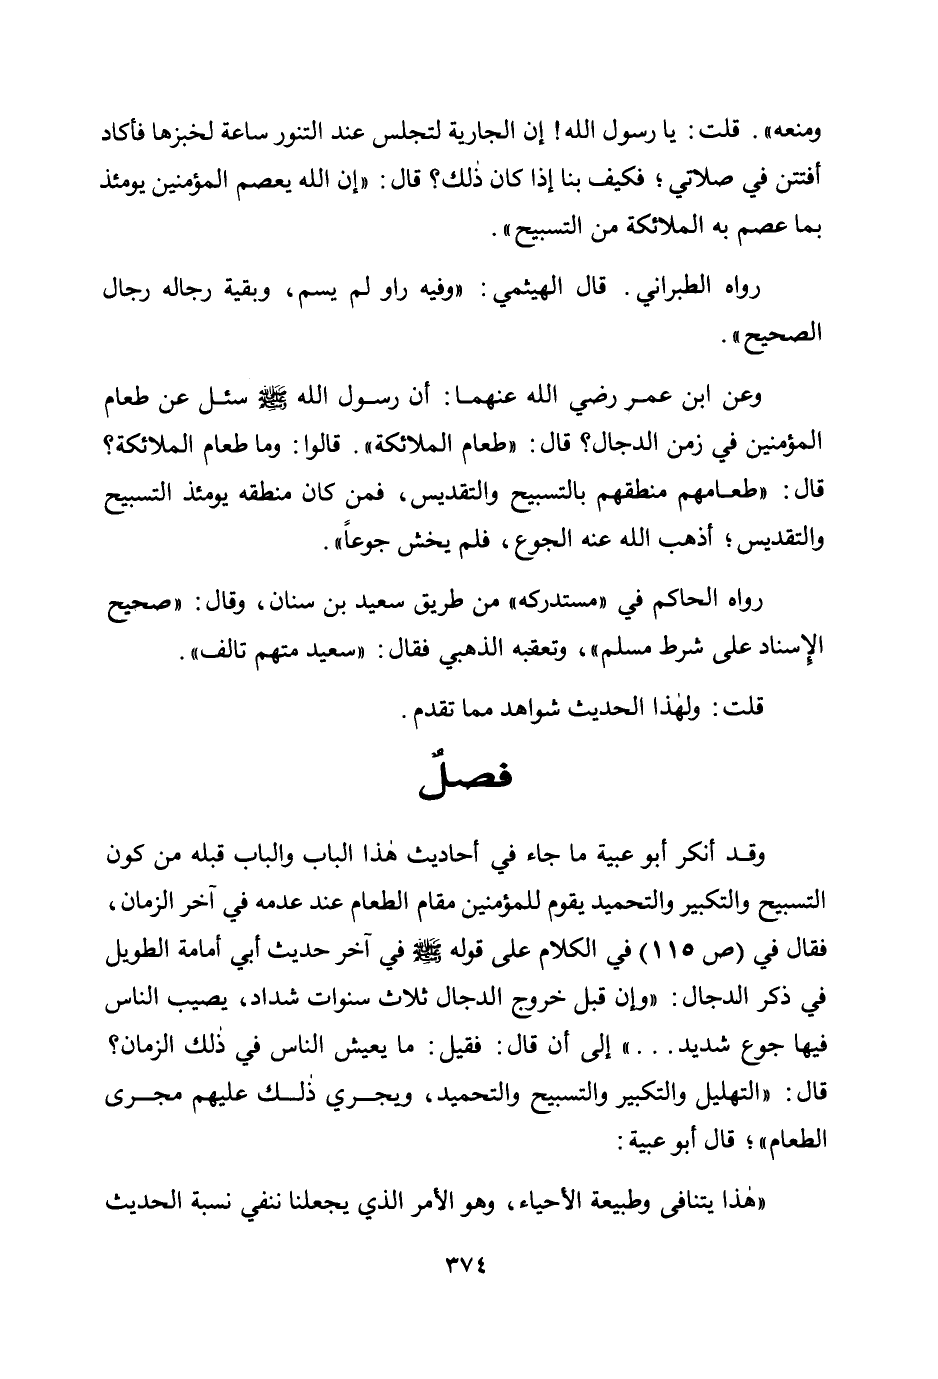 ومنعه». قلت: يا رسول الله! إن الجارية لتجلس عند التنور ساعة لخبزها فأكاد
أفتتن في صلاتي؛ فكيف بنا إذا كان ذٰلك؟ قال: «إن الله يعصم المؤمنين يومئذ
بما عصم به الملائكة من التسبيح».
رواه الطبراني. قال الهيثمي: «وفيه راو لم يسم، وبقية رجاله رجال
الصحيح».
وعن ابن عمر رضي الله عنهما: أن رسول الله ﷺ سئل عن طعام
المؤمنين في زمن الدجال؟ قال: «طعام الملائكة». قالوا: وما طعام الملائكة؟
قال: «طعامهم منطقهم بالتسبيح والتقديس، فمن كان منطقه يومئذ التسبيح
والتقديس؛ أذهب الله عنه الجوع، فلم يخش جوعاً».
رواه الحاكم في «مستدركه» من طريق سعيد بن سنان، وقال: «صحيح
الإسناد على شرط مسلم»، وتعقبه الذهبي فقال: «سعيد متهم تالف».
قلت: ولهٰذا الحديث شواهد مما تقدم.
فصلٌ
وقد أنكر أبو عبية ما جاء في أحاديث هٰذا الباب والباب قبله من كون
التسبيح والتكبير والتحميد يقوم للمؤمنين مقام الطعام عند عدمه في آخر الزمان،
فقال في (ص ١١٥) في الكلام على قوله ﷺ في آخر حديث أبي أمامة الطويل
في ذكر الدجال: «وإن قبل خروج الدجال ثلاث سنوات شداد، يصيب الناس
فيها جوع شديد...» إلى أن قال: فقيل: ما يعيش الناس في ذٰلك الزمان؟
قال: «التهليل والتكبير والتسبيح والتحميد، ويجري ذٰلك عليهم مجرى
الطعام»؛ قال أبو عبية:
«هٰذا يتنافى وطبيعة الأحياء، وهو الأمر الذي يجعلنا ننفي نسبة الحديث
٣٧٤